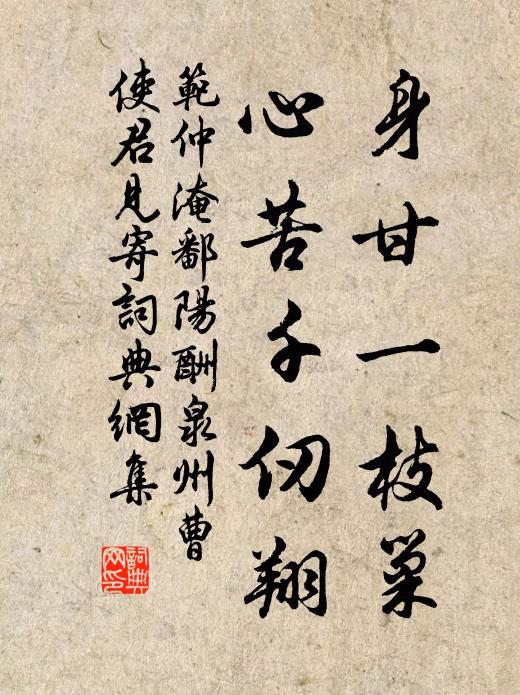 身甘一枝巢
心苦千仞翔
範仲淹鄱陽酬泉州曹
使君見寄詞典網集
詞典
网印